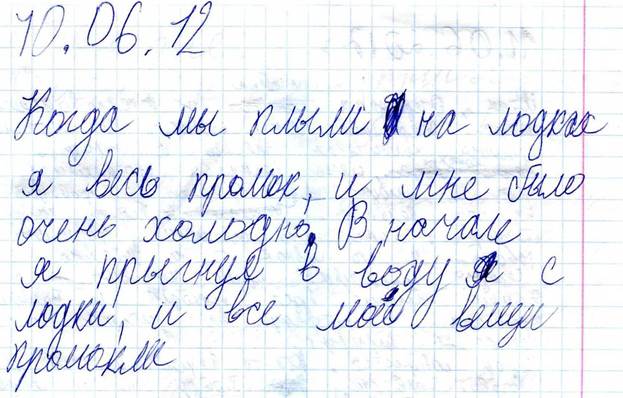 10.06.12
Когда мы плыли на лодках
я весь промок, и мне было
очень холодно. В начале
я прыгнул в воду с
лодки, и все мои вещи
промокли